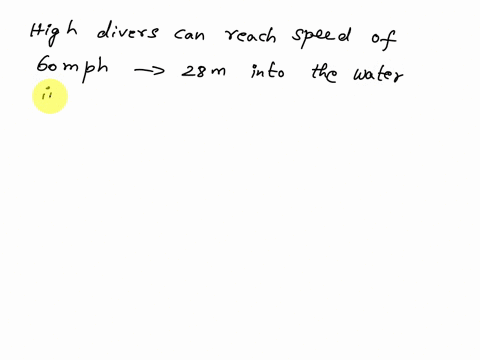 High divers can reach speed of
60mph → 28m into the water